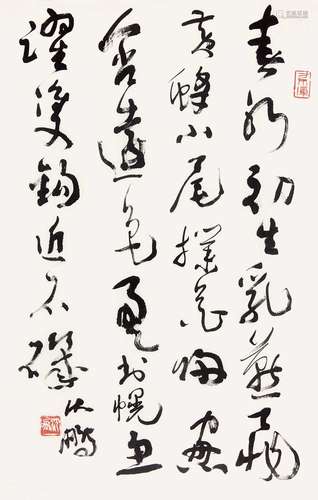 春水初生乳燕飛
黄蜂小尾撲花歸窗
含遠色通書幌魚
擁香鈎近石磯
沈鵬